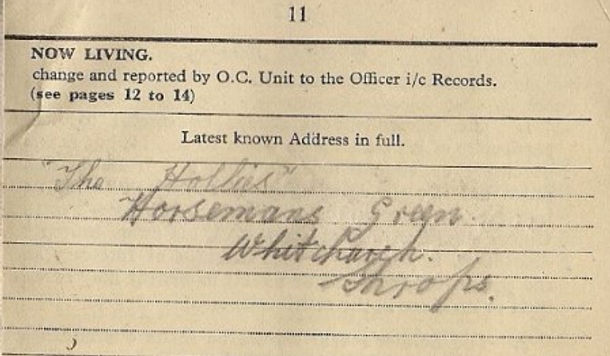 11
NOW LIVING.
change and reported by O.C. Unit to the Officer i/c Records.
(see pages 12 to 14)
Latest known Address in full.
"The Hollies"
Horsemans Green.
Whitchurch.
Shrops.